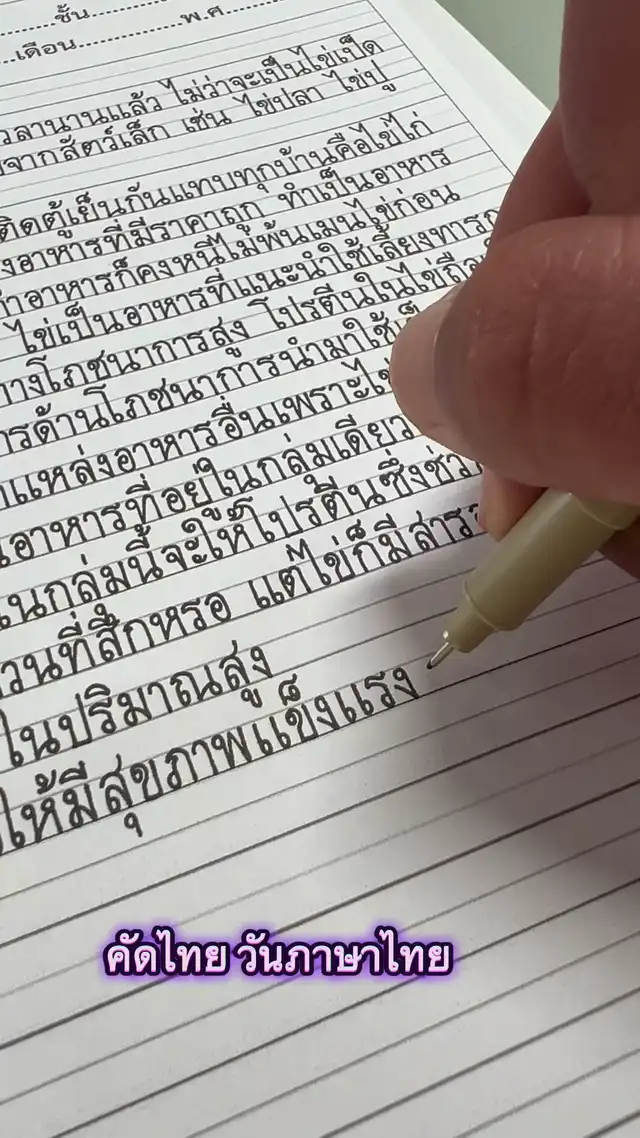 ชั้น
เดือน พ.ศ.
นานแล้ว ไม่ว่าจะเป็นไข่เป็ด
จากสัตว์เล็ก เช่น ไข่ปลา ไข่ปู
ติดตู้เย็นกันแทบทุกบ้านคือไข่ไก่
อาหารที่มีราคาถูก ทำเป็นอาหาร
อาหารก็คงหนีไม่พ้นเมนูไข่ก่อน
ไข่เป็นอาหารที่แนะนำใช้เลี้ยงทารก
ทางโภชนาการสูง โปรตีนในไข่ถือ
ด้านโภชนาการนำมาใช้
แหล่งอาหารอื่นเพราะไข่
อาหารที่อยู่ในกลุ่มเดียว
ในกลุ่มนี้จะให้โปรตีนซึ่งช่วย
ส่วนที่สึกหรอ แต่ไข่ก็มีสาร
ในปริมาณสูง
ให้มีสุขภาพแข็งแรง
คัดไทย วันภาษาไทย